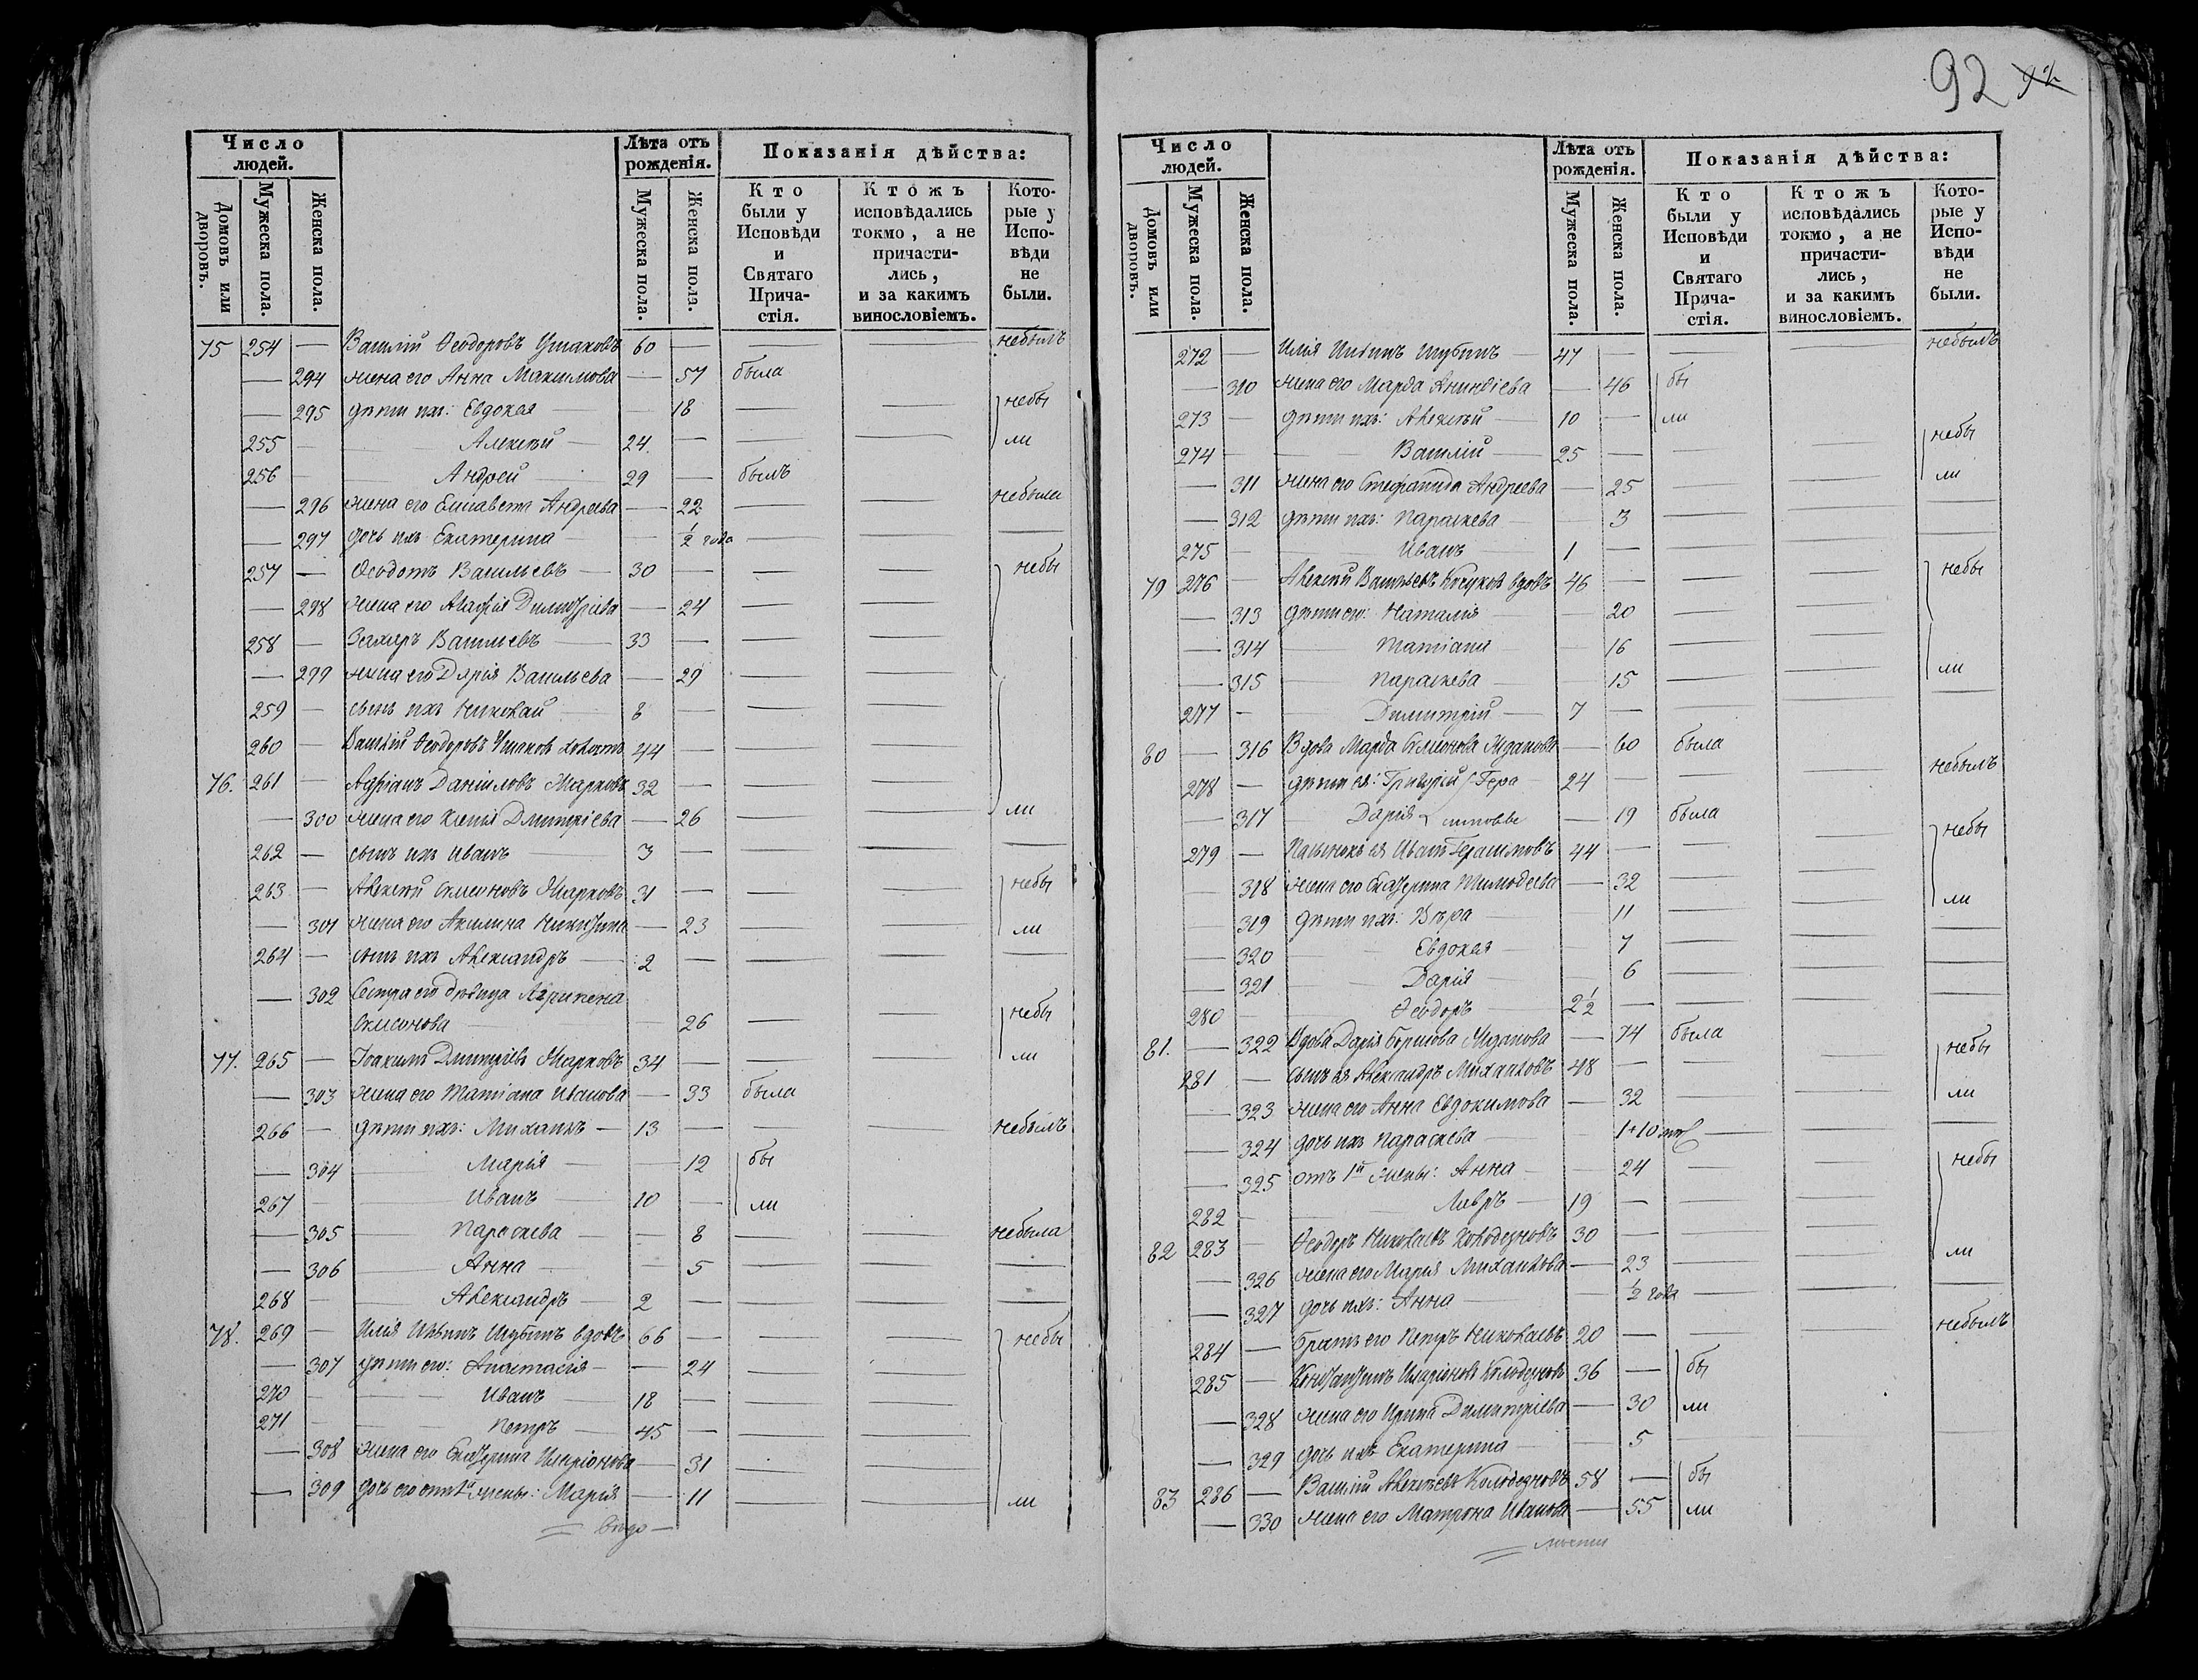 92 92
Число людей. Лѣта отъ рожденія. Показанія дѣйства:
Домовъ или дворовъ. Мужеска пола. Женска пола. Мужеска пола. Женска пола. Кто были у Исповѣди и Святаго Причастія. Ктожъ исповѣдались токмо, а не причастились, и за какимъ винословіемъ. Которые у Исповѣди не были.
75 254 — Василій Ѳеодоровъ Ушаковъ 60 — — — небылъ
— 294 жена его Анна Максимова — 57 была
— 295 дѣти ихъ: Евдокея — 18 — — небы
255 — Алексѣй — 24 — — — ли
256 — Андрей — 29 — былъ
— 296 жена его Елисавета Андреева — 22 — — небыла
— 297 дочь ихъ Екатерина — ½ года — — —
257 — Ѳеодотъ Васильевъ — 30 — — — небы
— 298 жена его Агафія Димитріева — 24 — —
258 — Захаръ Васильевъ — 33 — — —
— 299 жена его Дарія Васильева — 29 — —
259 — сынъ ихъ Николай — 8 — — —
260 — Василій Ѳеодоровъ Ушаковъ холостъ 44 — — —
76. 261 — Адріанъ Даніиловъ Жарковъ 32 — — —
— 300 жена его Ксенія Дмитріева — 26 — — ли
262 — сынъ ихъ Иванъ — 3 — — — —
263 — Алексѣй Симеоновъ Жарковъ 31 — — — небы
— 301 жена его Акилина Никитина — 23 — — ли
264 — сынъ ихъ Александръ — 2 — — — —
— 302 Сестра его дѣвица Агрипена
Симеонова — 26 — — небы
77. 265 — Іоакимъ Дмитріевъ Жарковъ 34 — — — ли
— 303 жена его Татіана Иванова — 33 была —
266 — дѣти ихъ: Михаилъ — 13 — — — небылъ
— 304 — Марія — 12 бы —
267 — Иванъ — 10 — ли —
— 305 — Параскева — 8 — — небыла
— 306 — Анна — 5 — — —
268 — Александръ — 2 — — — —
78. 269 — Илія Ильинъ Шубинъ вдовъ 66 — — — небы
— 307 дѣти его: Анастасія — 24 — —
270 — Иванъ — 18 — — —
271 — Петръ — 45 — — —
— 308 жена его Екатерина Иларіонова — 31 — —
— 309 дочь его отъ 1й жены: Марія — 11 — — ли
Число людей. Лѣта отъ рожденія. Показанія дѣйства:
Домовъ или дворовъ. Мужеска пола. Женска пола. Мужеска пола. Женска пола. Кто были у Исповѣди и Святаго Причастія. Ктожъ исповѣдались токмо, а не причастились, и за какимъ винословіемъ. Которые у Исповѣди не были.
272 — Илія Ильинъ Шубинъ — 47 — — — небылъ
— 310 жена его Марѳа — 46 бы
273 — дѣти ихъ: Алексѣй — 10 — ли
274 — Василій — 25 — — — небы
— 311 жена его Стефанида Андреева — 25 — — ли
— 312 дѣти ихъ: Параскева — 3 — — —
275 — Иванъ — 1 — — — —
79 276 — Алексѣй Васильевъ вдовъ 46 — — — небы
— 313 дѣти его: Наталія — 20 — —
— 314 — Татіана — 16 — —
— 315 — Параскева — 15 — — ли
277 — Димитрій — 7 — — — —
80 — 316 Вдова Марѳа Симеонова Жданова — 60 была
278 — дѣти ея: Григорій Гера 24 — — небылъ
— 317 Дарія симовы — 19 была
279 — Пасынокъ ея Иванъ Герасимовъ 44 — — — небы
— 318 жена его Екатерина Тимоѳеева — 32 — — ли
— 319 дѣти ихъ: Вѣра — 11 — — —
— 320 — Евдокея — 7 — — —
— 321 — Дарія — 6 — — —
280 — Ѳеодоръ — 2½ — — — —
81. — 322 Вдова Дарія Борисова Жданова — 74 была
281 — сынъ ея Александръ Михаиловъ 48 — — — небы
— 323 жена его Анна Евдокимова — 32 — — ли
— 324 дочь ихъ Параскева — 1+10 — — —
— 325 отъ 1й жены: Анна — 24 — — небы
282 — Лавръ — 19 — — —
82 283 — Ѳеодоръ Николаевъ Колодезновъ 30 — — —
— 326 жена его Марія Михаилова — 23 — — ли
— 327 дочь ихъ: Анна — ½ года — — —
284 — братъ его Петръ Николаевъ 20 — — — небылъ
285 — Константинъ Иларіоновъ Колодезновъ 36 — бы
— 328 жена его Ирина Димитріева — 30 ли
— 329 дочь ихъ Екатерина — 5 — — —
83 286 — Василій Алексѣевъ Колодезновъ 58 — бы
— 330 жена его Матрона Иванова — 55 ли